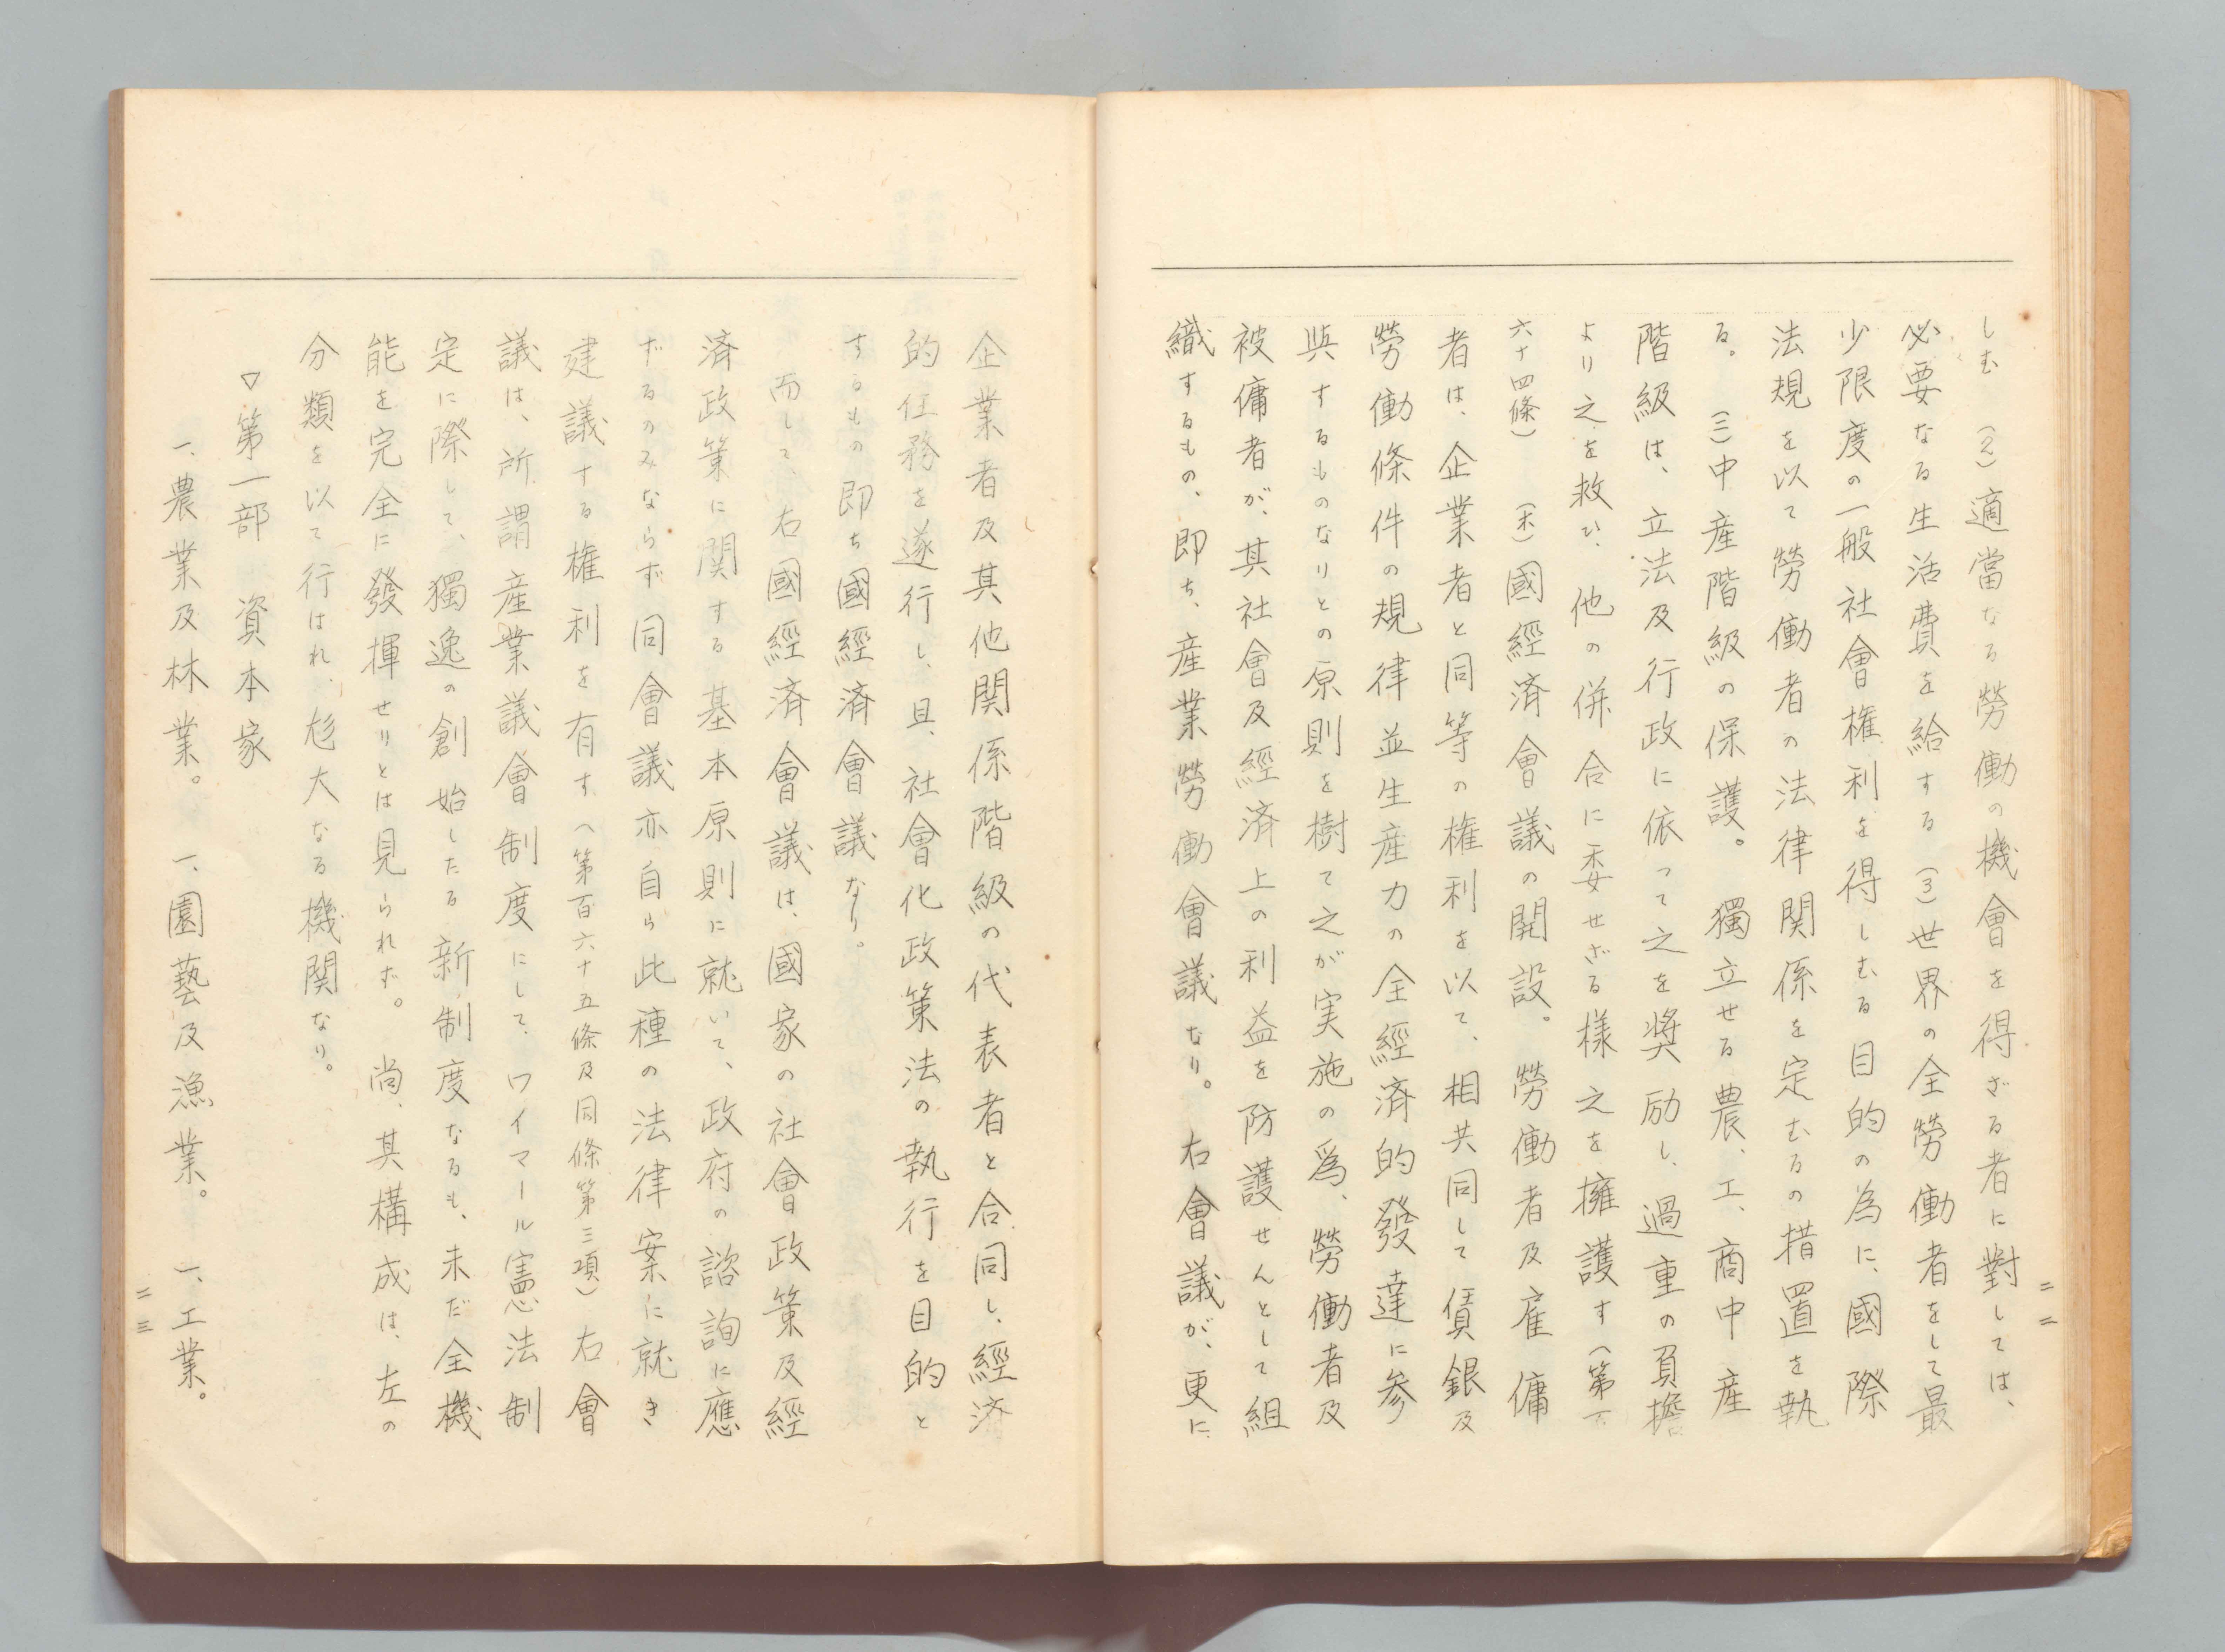 しむ (2)適當なる勞働の機會を得ざる者に對しては、
必要なる生活費を給する (3)世界の全勞働者をして最
少限度の一般社會權利を得しむる目的の為に、國際
法規を以て勞働者の法律関係を定むるの措置を執
る。 (三)中産階級の保護。 獨立せる農、工、商中産
階級は、立法及行政に依つて之を奨励し、過重の負擔に
より之を救ひ、他の併合に委せざる様之を擁護す(第百
六十四條) (末)國經済會議の開設。 勞働者及雇傭
者は、企業者と同等の権利を以て、相共同して賃銀及
勞働條件の規律並生産力の全經済的發達に参
與するものなりとの原則を樹て之が実施の爲、勞働者及
被傭者が、其社會及經済上の利益を防護せんとして組
織するもの、即ち、産業勞働會議なり。 右會議が、更に
二二
企業者及其他関係階級の代表者と合同し、經済
的任務を遂行し、且、社會化政策法の執行を目的と
するもの即ち國經済會議なり。
而して、右國經済會議は、國家の社會政策及經
済政策に関する基本原則に就いて、政府の諮詢に應
ずるのみならず同會議亦自ら此種の法律案に就き
建議する権利を有す(第百六十五條及同條第三項)右會
議は、所謂産業議會制度にして、ワイマール憲法制
定に際して、獨逸の創始したる新制度なるも、未だ全機
能を完全に發揮せりとは見られず。 尚、其構成は、左の
分類を以て行はれ、尨大なる機関なり。
▽第一部 資本家
一、農業及林業。 一、園藝及漁業。 一、工業。
二三